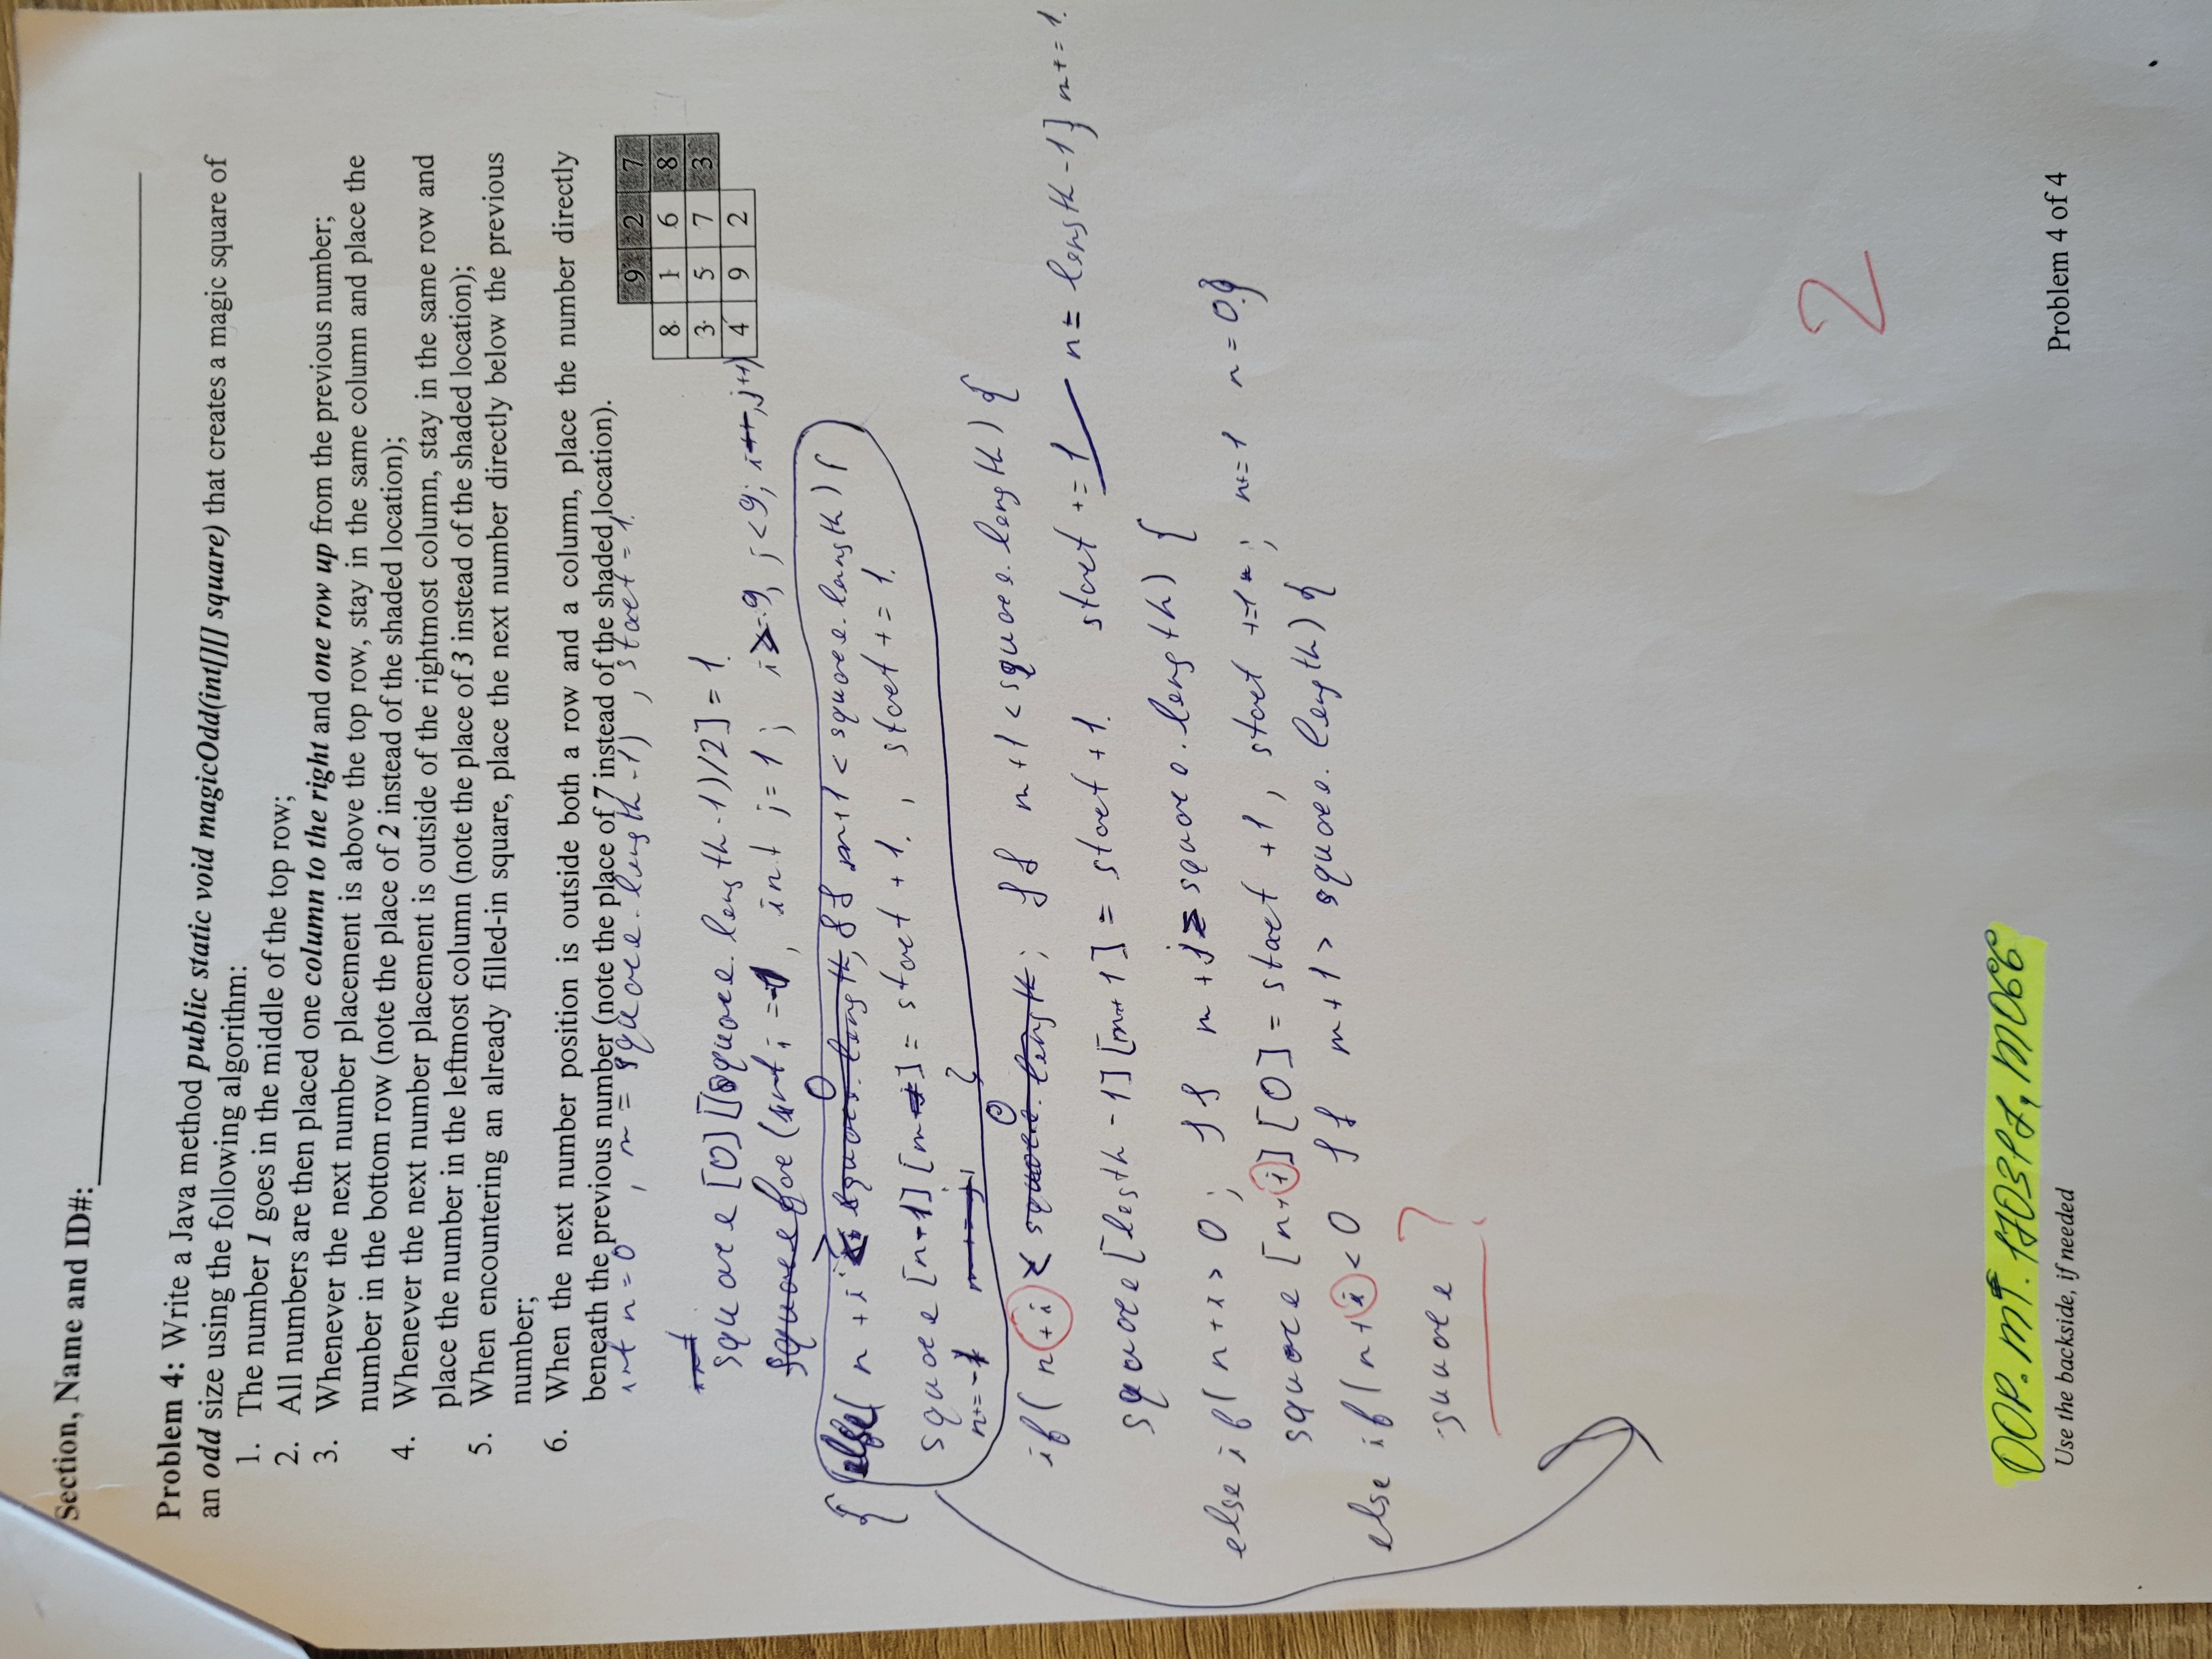 Section, Name and ID#:
Problem 4: Write a Java method public static void magicOdd(int[][] square) that creates a magic square of
an odd size using the following algorithm:
1. The number 1 goes in the middle of the top row;
2. All numbers are then placed one column to the right and one row up from the previous number;
3. Whenever the next number placement is above the top row, stay in the same column and place the
number in the bottom row (note the place of 2 instead of the shaded location);
4. Whenever the next number placement is outside of the rightmost column, stay in the same row and
place the number in the leftmost column (note the place of 3 instead of the shaded location);
5. When encountering an already filled-in square, place the next number directly below the previous
number;
6. When the next number position is outside both a row and a column, place the number directly
beneath the previous number (note the place of 7 instead of the shaded location).
int n = 0 , m = square.length-1) , start = 1.
9 2 7
8 1 6 8
3 5 7 3
4 9 2
int
square [0] [(square.length-1)/2] = 1.
square for (int i = -1, int j = 1; i >= -9, j < 9; i++, j++)
{ else( n + i > 0 && m+1 < square.length) {
square [n-1] [m+j] = start + 1. , start += 1.
n += -1 m += j }
if( n + i < 0 ; && m+1 < square.length) {
square [legth - 1] [m+1] = start + 1. start += 1 n = length - 1 } m += 1.
else if( n + i > 0 ; && m + j ≥ square.length) {
square [n+i] [0] = start + 1, start += 1 ; n += 1 n = 0.}
else if( n + i < 0 && m + 1 > square.length) {
square ?
2
OOP.MT.
M066
Use the backside, if needed
Problem 4 of 4